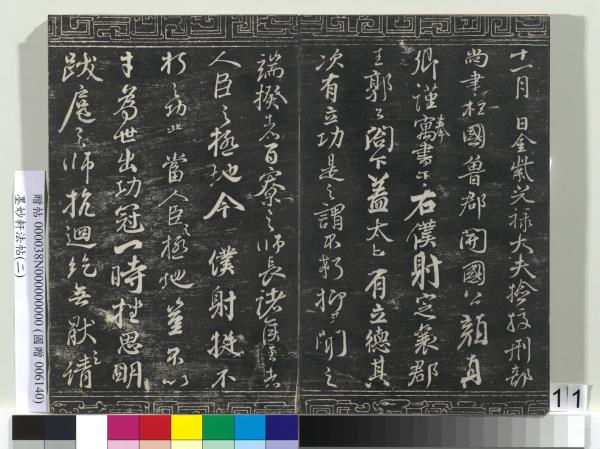 十一月日金紫光祿大夫檢校刑部
尚書柱國魯郡開國公顏真
卿謹奉寓書于右僕射定襄郡
王郭公閤下蓋太上有立德其
次有立功是之謂不朽抑又聞之
端揆者百寮之師長諸侯王者
人臣之極地今僕射挺不
朽之功業當人臣極地豈不以
才為世出功冠一時挫思明
跋扈之師抗迴紇無猒之請
贈帖 000038N000000000 (國贈 006140)
墨妙軒法帖(二)
11